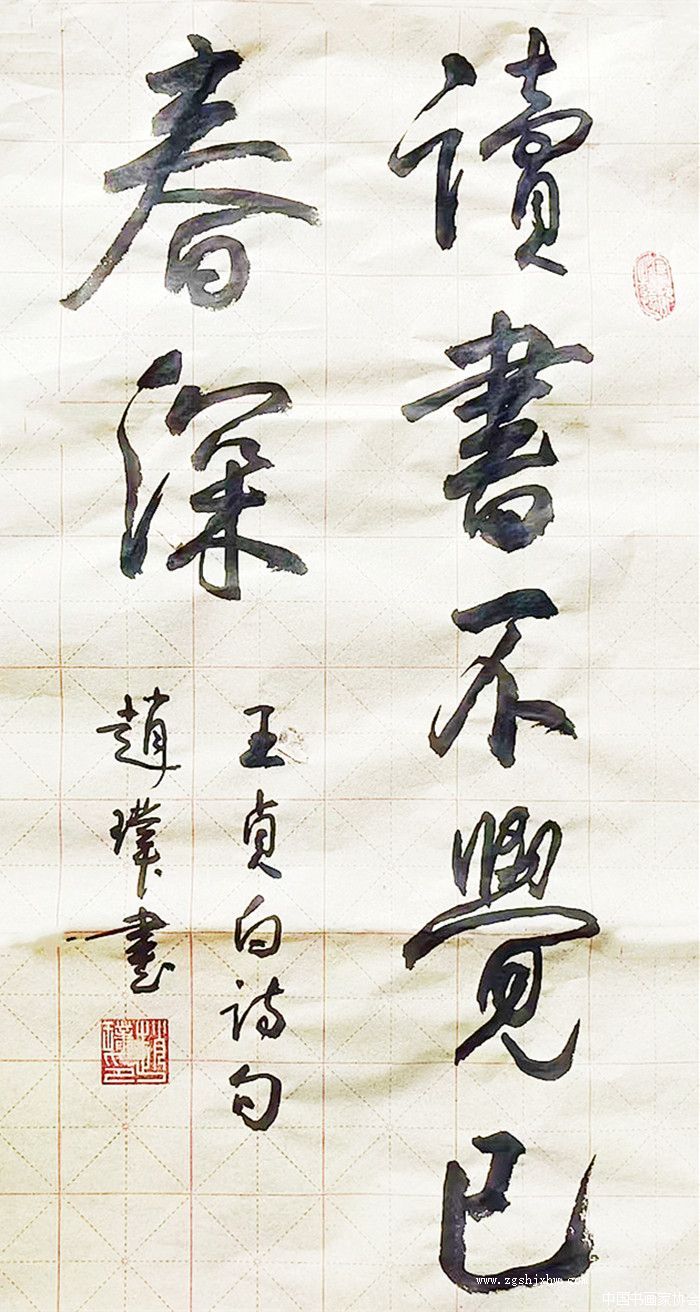 讀書不覺已
春深
王貞白詩句
趙璞書
www.zgshixhw.com
中国书画家协会